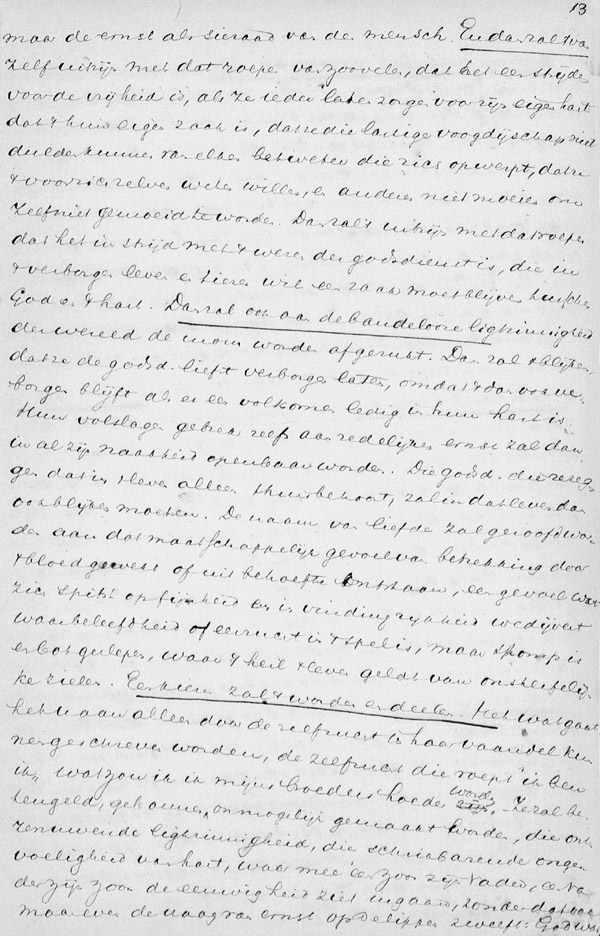 13
maar de ernst als sieraad van de mensch. En dan zal 't van
zelf uit zijn met dat roepen van zoovelen, dat het een strijden
voor de vrijheid is, als ze ieder laten zorgen voor zijn eigen hart
dat 't hun eigen zaak is, dat ze die lastige voogdijschap niet
dulden kunnen van elken betweter die zich opwerpt, dat ze
't voor zich zelve weten willen, en anderen niet moeien om
zelf niet gemoeid te worden. Dan zal 't uit zijn met dat roepen
dat het in strijd met 't wezen der godsdienst is, die in
't verborgen leven en tieren wil een zaak moet blijven tusschen
God en 't hart. Dan zal ook aan de bandelooze ligtzinnigheid
der wereld de mom worden afgerukt. Dan zal 't blijken,
dat ze de godsd. liefst verborgen laten, omdat 't dan ook ver-
borgen blijft als er een volkomen ledig in hun hart is.
Hun volslagen gebrek zelfs aan redelijken ernst zal dan
in al zijn naaktheid openbaar worden. Die godsd. die ze zeg-
gen dat in 't leven alleen thuis behoort, zal in dat leven dan
ook blijken moeten. De naam van liefde zal geroofd wor-
den aan dat maatschappelijk gevoel van betrekking door
't bloed gewekt of uit behoefte ontstaan, een gevoel
zich spitst op fijnheid en in vindingrijkheid wedijvert
waar beleefdheid of eerzucht in 't spel is, maar stomp is
en bot geslepen, waar 't heil 't leven geldt van onsterfelij-
ke zielen. Een kiezen zal 't worden en deelen. Het wat gaat
het u aan alleen door de zelfzucht in haar vaandel kun-
nen geschreven worden, de zelfzucht die roept ik ben
ik, wat zou ik in mijns broeders hoeder word zijn. Ze zal be-
teugeld, gebannen, onmogelijk gemaakt worden, die ont-
zenuwende ligtzinnigheid, die schrikbarende onge-
voeligheid van hart, waar mee een zoon zijn vader, een va-
der zijn zoon de eeuwigheid ziet ingaan, zonder dat ooit
maar even de vraag van ernst op de lippen zweeft: God wat